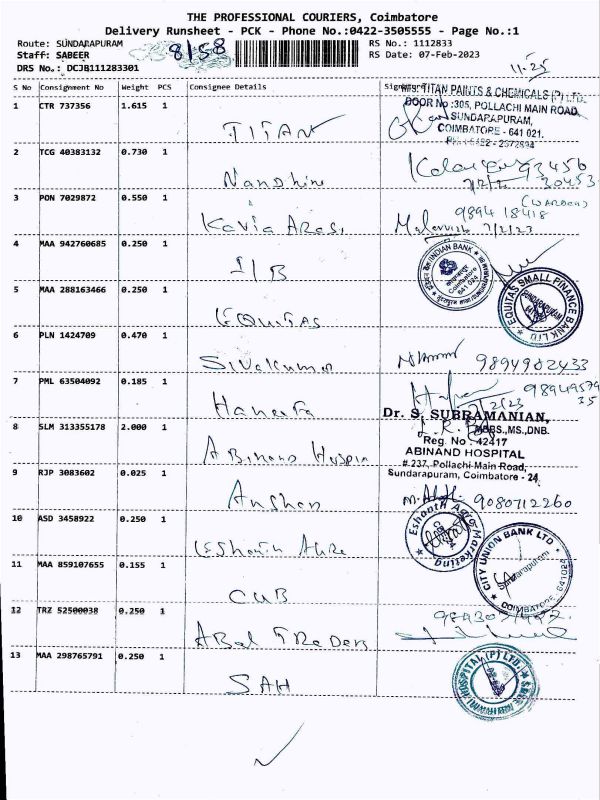 THE PROFESSIONAL COURIERS, Coimbatore
Delivery Runsheet - PCK - Phone No.:0422-3505555 - Page No.:1
Route: SUNDARAPURAM 8/58 RS No.: 1112833
Staff: SABEER RS Date: 07-Feb-2023
DRS No.: DCJB1111283301 11.25
S No Consignment No Weight PCS Consignee Details
M/S. TITAN PAINTS & CHEMICALS (P) LTD.
DOOR No :305, POLLACHI MAIN ROAD,
SUNDARAPURAM,
COIMBATORE - 641 021.
1 CTR 737356 1.615 1 TITAN
2 TCG 40383132 0.730 1 Nandhini 93456
7/2/2 30453
3 PON 7029872 0.550 1 Kavia Arasi 98941 18418
(WARDEN)
7/2/23
4 MAA 942760685 0.250 1 I/B
INDIAN BANK
Coimbatore
641 024
5 MAA 288163466 0.250 1 EQUITAS
EQUITAS SMALL FINANCE BANK LTD
SUNDARAPURAM
6 PLN 1424709 0.470 1 Sivakumar 9894982433
7 PML 63504092 0.185 1 Haneefa
8 SLM 313355178 2.000 1 Abinand Hospin
Dr. S. SUBRAMANIAN,
MBBS.,MS.,DNB.
Reg. No. 42417
ABINAND HOSPITAL
# 237, Pollachi Main Road,
Sundarapuram, Coimbatore - 24.
9 RJP 3083602 0.025 1 9080712260
10 ASD 3458922 0.250 1
Eshanth Agro Marketing
11 MAA 859107655 0.155 1 CUB
CITY UNION BANK LTD
Sundarapuram
COIMBATORE - 641024
12 TRZ 52500038 0.250 1 ABal TRaders
13 MAA 298765791 0.250 1 SAH
HOSPITAL (P) LTD